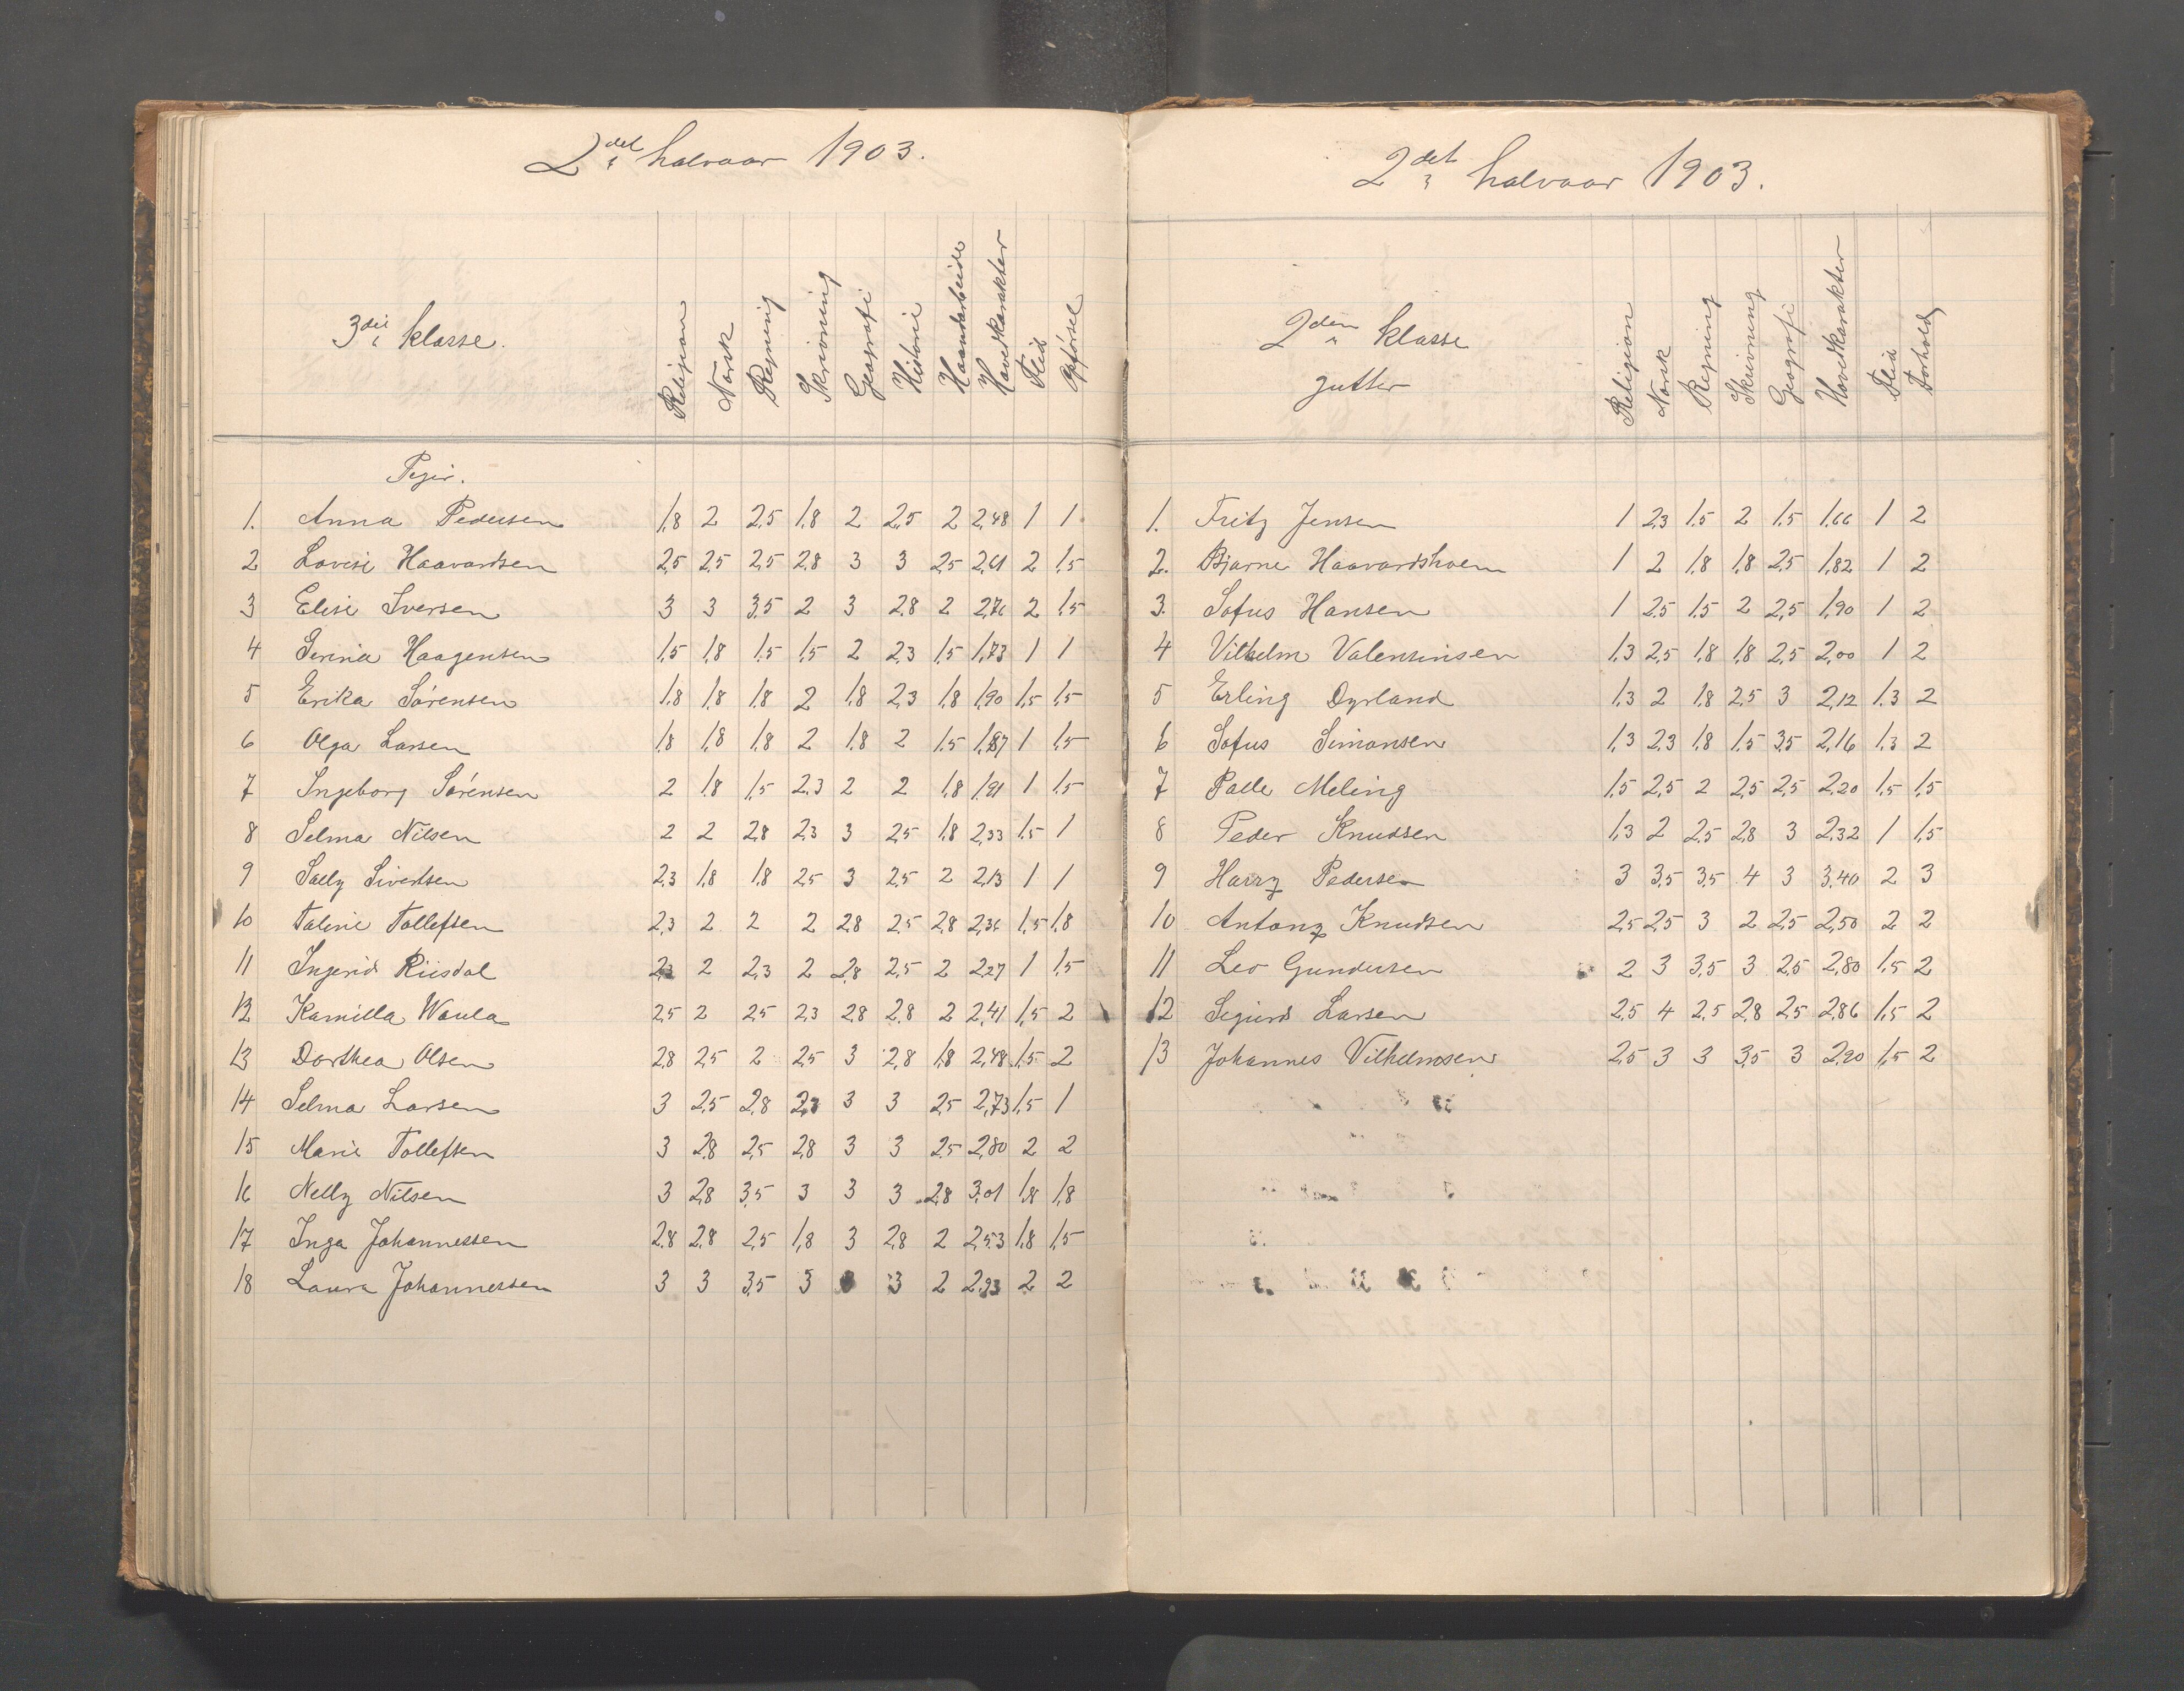 2det halvaar 1903.
3die klasse.
Religion Norsk Regning Skrivning Geografi Historie Haandarbeide Hovedkarakter Flid Opførsel
Piger.
1. Anna Pedersen 1,8 2 2,5 1,8 2 2,5 2 2,48 1 1
2 Lovise Haavardsen 2,5 2,5 2,5 2,8 3 3 2,5 2,61 2 1,5
3 Elise Iversen 3 3 3,5 2 3 2,8 2 2,76 2 1,5
4 Serina Haagensen 1,5 1,8 1,5 1,5 2 2,3 1,5 1,73 1 1
5 Erika Sørensen 1,8 1,8 1,8 2 1,8 2,3 1,8 1,90 1,5 1,5
6 Olga Larsen 1,8 1,8 1,8 2 1,8 2 1,5 1,87 1 1,5
7 Ingeborg Sørensen 2 1,8 1,5 2,3 2 2 1,8 1,91 1 1,5
8 Selma Nilsen 2 2 2,8 2,3 3 2,5 1,8 2,33 1,5 1
9 Sally Sivertsen 2,3 1,8 1,8 2,5 3 2,5 2 2,13 1 1
10 Taline Tollefsen 2,3 2 2 2 2,8 2,5 2,8 2,36 1,5 1,8
11 Ingerid Riisdal 2,3 2 2,3 2 2,8 2,5 2 2,27 1 1,5
12 Kamilla Waula 2,5 2 2,5 2,3 2,8 2,8 2 2,41 1,5 2
13 Dorthea Olsen 2,8 2,5 2 2,5 3 2,8 1,8 2,48 1,5 2
14 Selma Larsen 3 2,5 2,8 2,3 3 3 2,5 2,73 1,5 1
15 Marie Tollefsen 3 2,8 2,5 2,8 3 3 2,5 2,80 2 2
16 Nelly Nilsen 3 2,8 3,5 3 3 3 2,8 3,01 1,8 1,8
17 Inga Johannessen 2,8 2,8 2,5 1,8 3 2,8 2 2,53 1,8 1,5
18 Laura Johannessen 3 3 3,5 3 3 3 2 2,93 2 2
2det halvaar 1903.
2den klasse
gutter
Religion Norsk Regning Skrivning Geografi Hovedkarakter Flid Forhold
1. Fritz Jensen 1 2,3 1,5 2 1,5 1,66 1 2
2. Bjarne Haavardsholm 1 2 1,8 1,8 2,5 1,82 1 2
3. Sofus Hansen 1 2,5 1,5 2 2,5 1,90 1 2
4 Vilhelm Valensinsen 1,3 2,5 1,8 1,8 2,5 2,00 1 2
5 Erling Dyrland 1,3 2 1,8 2,5 3 2,12 1,3 2
6 Sofus Simonsen 1,3 2,3 1,8 1,5 3,5 2,16 1,3 2
7 Palle Meling 1,5 2,5 2 2,5 2,5 2,20 1,5 1,5
8 Peder Knudsen 1,3 2 2,5 2,8 3 2,32 1 1,5
9 Harry Pedersen 3 3,5 3,5 4 3 3,40 2 3
10 Antony Knudsen 2,5 2,5 3 2 2,5 2,50 2 2
11 Leo Gundersen 2 3 3,5 3 2,5 2,80 1,5 2
12 Sigurd Larsen 2,5 4 2,5 2,8 2,5 2,86 1,5 2
13 Johannes Vilhelmsen 2,5 3 3 3,5 3 2,90 1,5 2